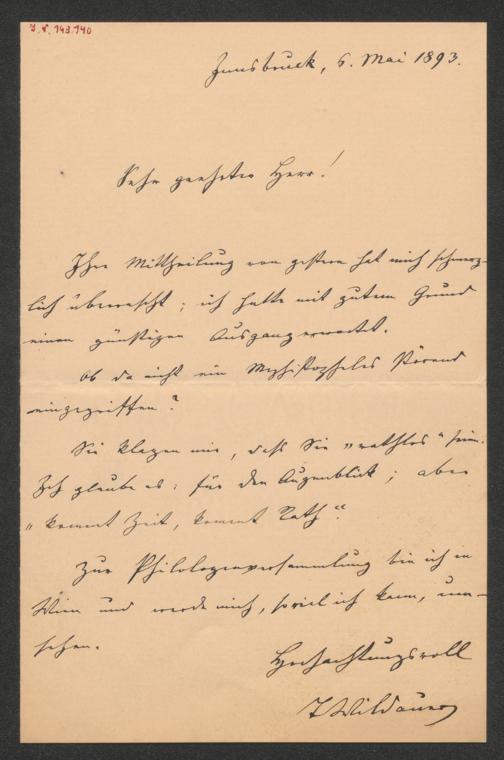 I. N. 143.140
Innsbruck, 6. Mai 1893.
Sehr geehrter Herr!
Ihre Mittheilung von gestern hat mich schmerz-
lich überrascht; ich hatte mit gutem Grund
einen günstigen Ausgang erwartet.
Ob da nicht ein Mephistopheles störend
eingegriffen?
Sie klagen mir, dass Sie „rathlos“ seien.
Ich glaube es: für den Augenblick; aber
„kommt Zeit, kommt Rath“.
Zur Philologenversammlung bin ich in
Wien und werde mich, soviel ich kann, um-
sehen.
Hochachtungsvoll
T Wildauer